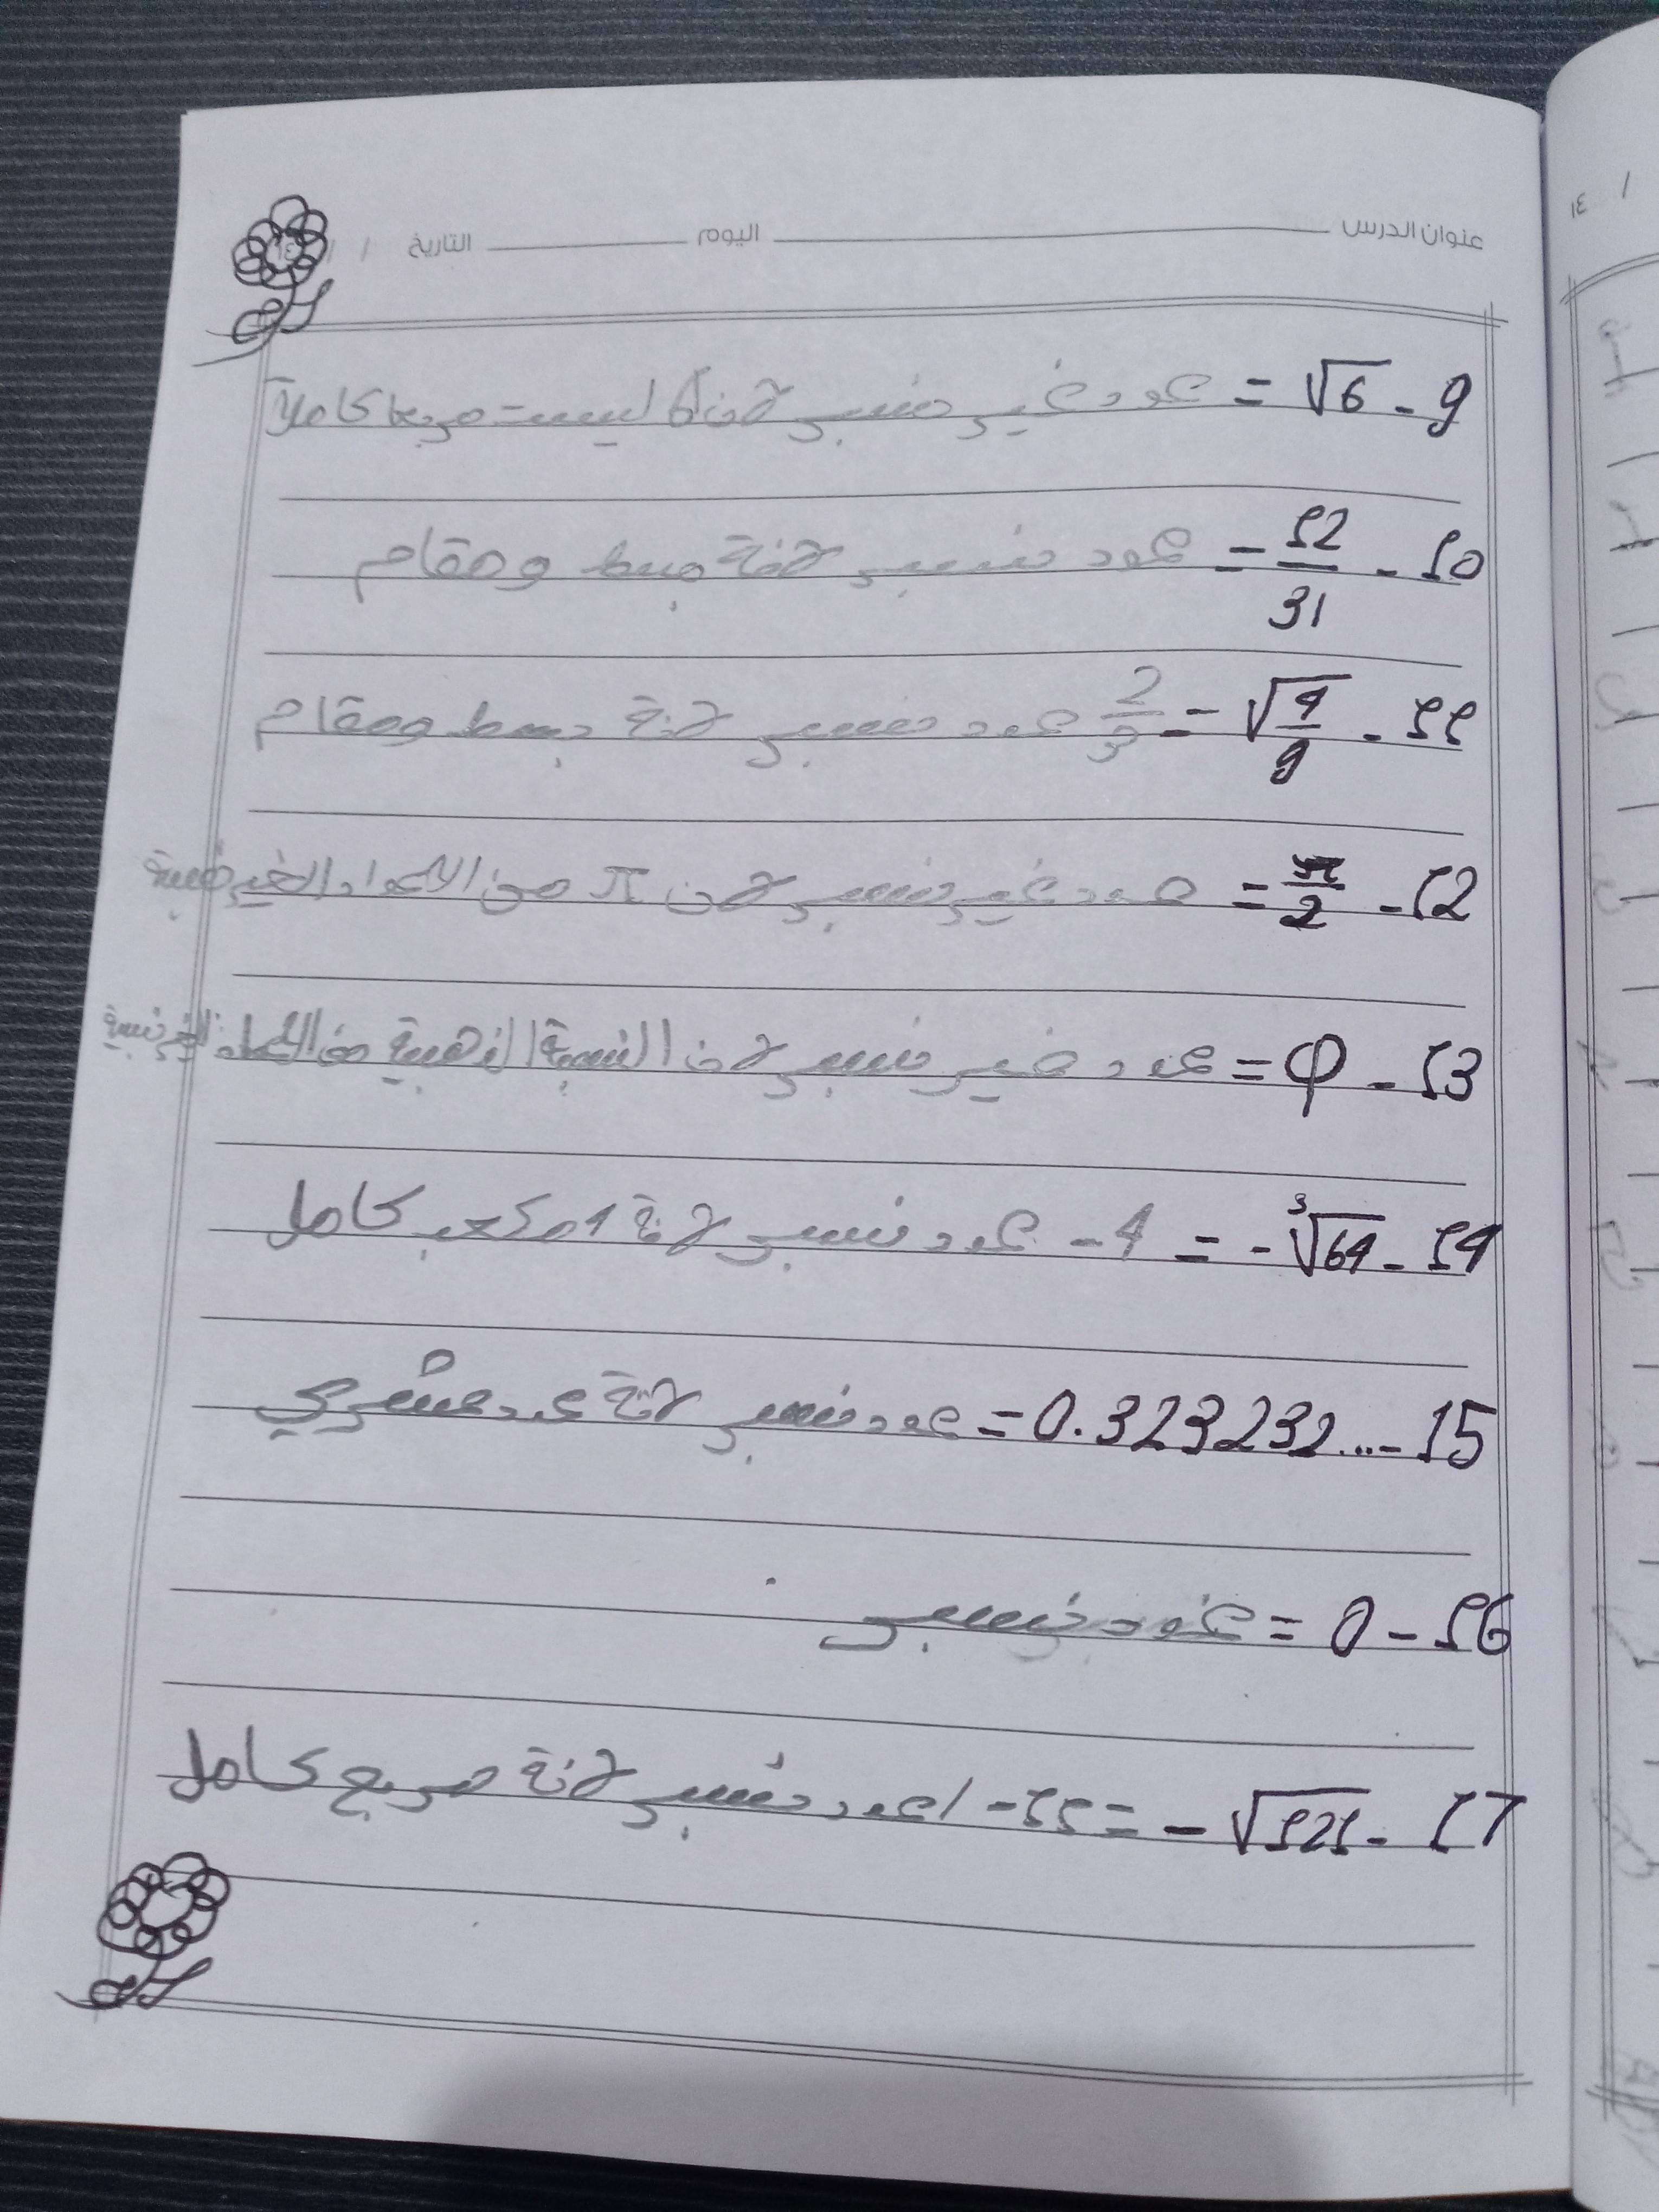 عنوان الدرس اليوم التاريخ / / ١٤
9 - √6 = عدد غير نسبي لان 6 ليست مربعا كاملاً
10 - 12/31 = عدد نسبي لانة بسط ومقام
11 - √4/9 = 2/3 عدد نسبي لانة بسط ومقام
12 - π/2 = عدد غير نسبي لان π من الاعداد الغير نسبية
13 - φ = عدد غير نسبي لان النسبة الذهبية من الاعداد الغير نسبية
14 - ∛64 - = 4- عدد نسبي لانة مكعب كامل
15 - 0.323232... = عدد نسبي لانة عدد عشري
16 - 0 = عدد نسبي
17 - √121 - = 11- عدد نسبي لانة مربع كامل